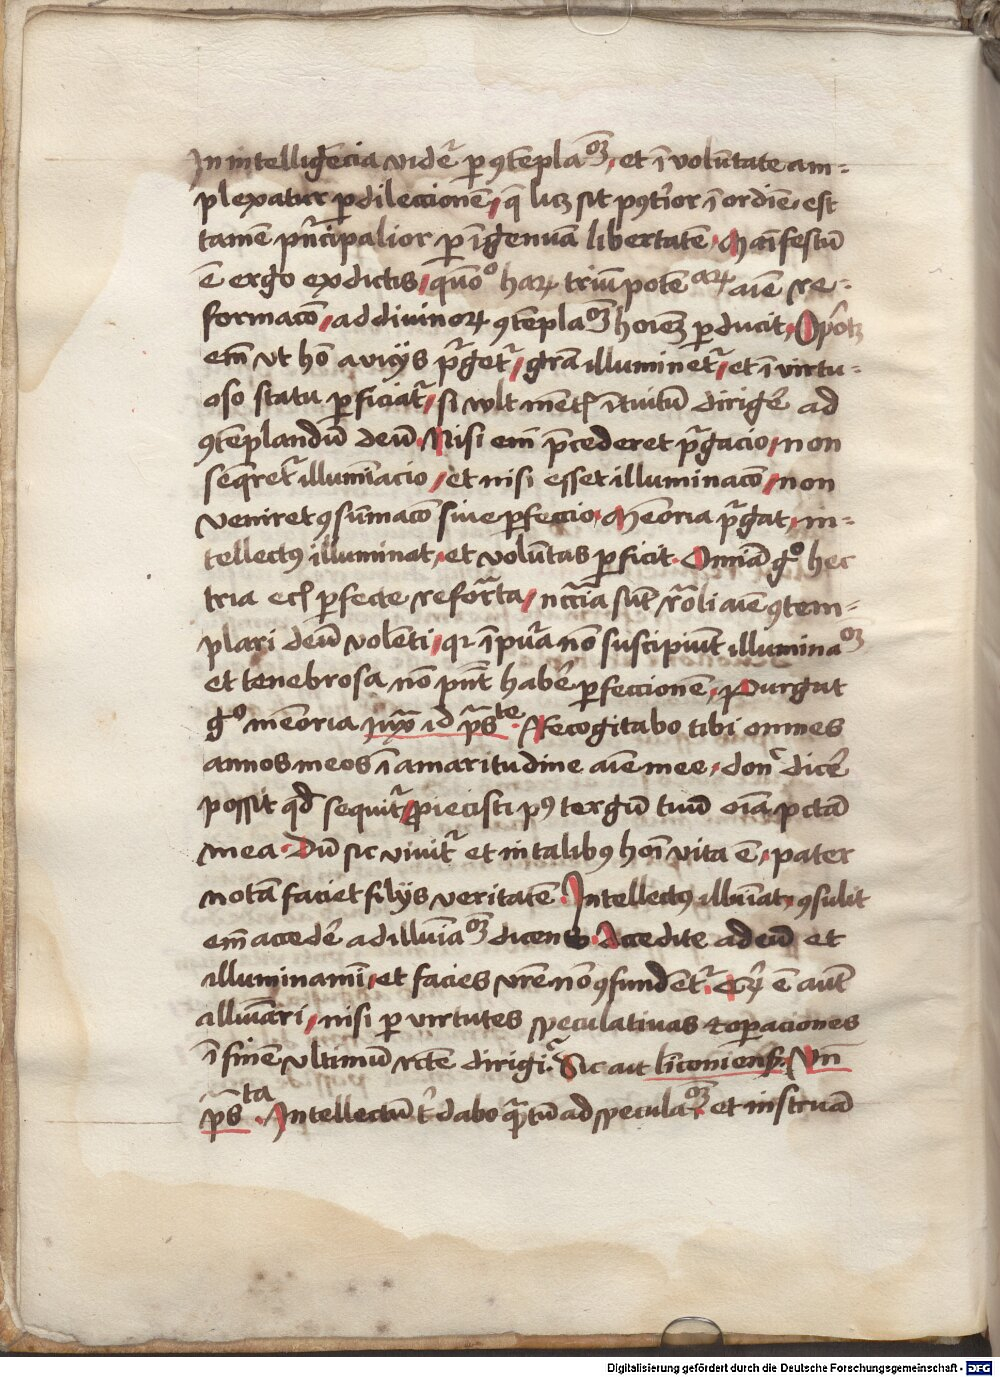 In intelligēcia vider̄ p ꝯtēplaꝰꝫ, et ī volūtate am-
plexatur p dileccionē, q̄ licꝫ sit pꝰterior ī ordīe, est
tamē pn̄cipalior p īgenuā libertatē. Maīfestū
ē ergo ex dictis, quōº haꝝ triū potēᵃʳꝝ aīe re-
formacō, ad divinoꝝ ꝯtēplaꝰꝫ hoīem pducit, Oportꝫ
em̄ vt hō a vicijs pʳgetʳ, grā illuminetʳ, et ī virtu-
oso statu pficiatʳ, si vult mētꝭ ītuitū dirigē ad
ꝯtēplandū deū. Nisi em̄ p̄cederet pʳgacio, non
seqretʳ illumīacio, et nisi esset illuminacō, non
veniret ꝯsūmacō sive pfeccio. Meōria pʳgat, in-
tellectꝰ illuminat, et volūtas pficit. Omīa gº hec
tria eclꝭ pfecte reforᵃta, nccīa sūt rōali aīe ꝯtem-
plari deū volēti, qꝛ īpura nō suscipiūt illuminaꝰꝫ
et tenebrosa nō pn̄t habē pfeccionē, Purgat
gº mēoria iuxᵃ id ps̄ᵗᵉ. Recogitabo tibi omnes
annos meos ī amaritudine aīe mee, donᶜ dicē
possit qd̄ sequitʳ, proiecisti pꝰ tergū tuū oīa pctā
mea. Dū sic vivitʳ et in talibꝰ hoī vita ē, pater
notā faciet filijs veritatē. Intellectꝰ illuīat, ꝯsulit
em̄ accedē ad illuīaꝰꝫ dicens. Accedite ad eū et
illuminamī, et facies vrē nō ꝯfundētʳ. ē aūt
illuīari, nisi p virtutes speculativas & opaciones
ī finē vltimū rcte dirigiʳ. Sic ait liconiēn̄. Vn̄
ps̄ᵗᵃ. Intellectū tⁱ dabo qᵃtū ad speculaꝰꝫ et instruā
Digitalisierung gefördert durch die Deutsche Forschungsgemeinschaft - DFG